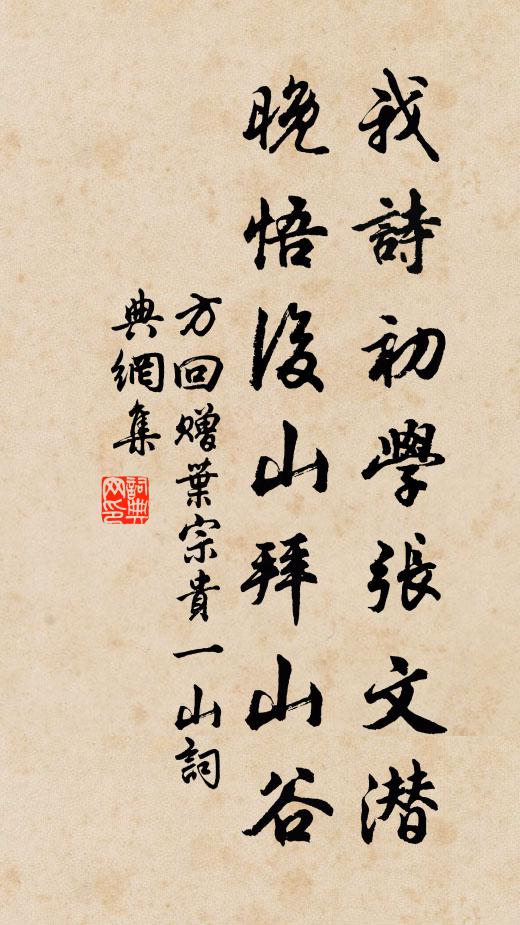 我詩初學張文潜
晚悟後山拜山谷
方回贈葉宗貴一山詞
典網集
詞典
网印